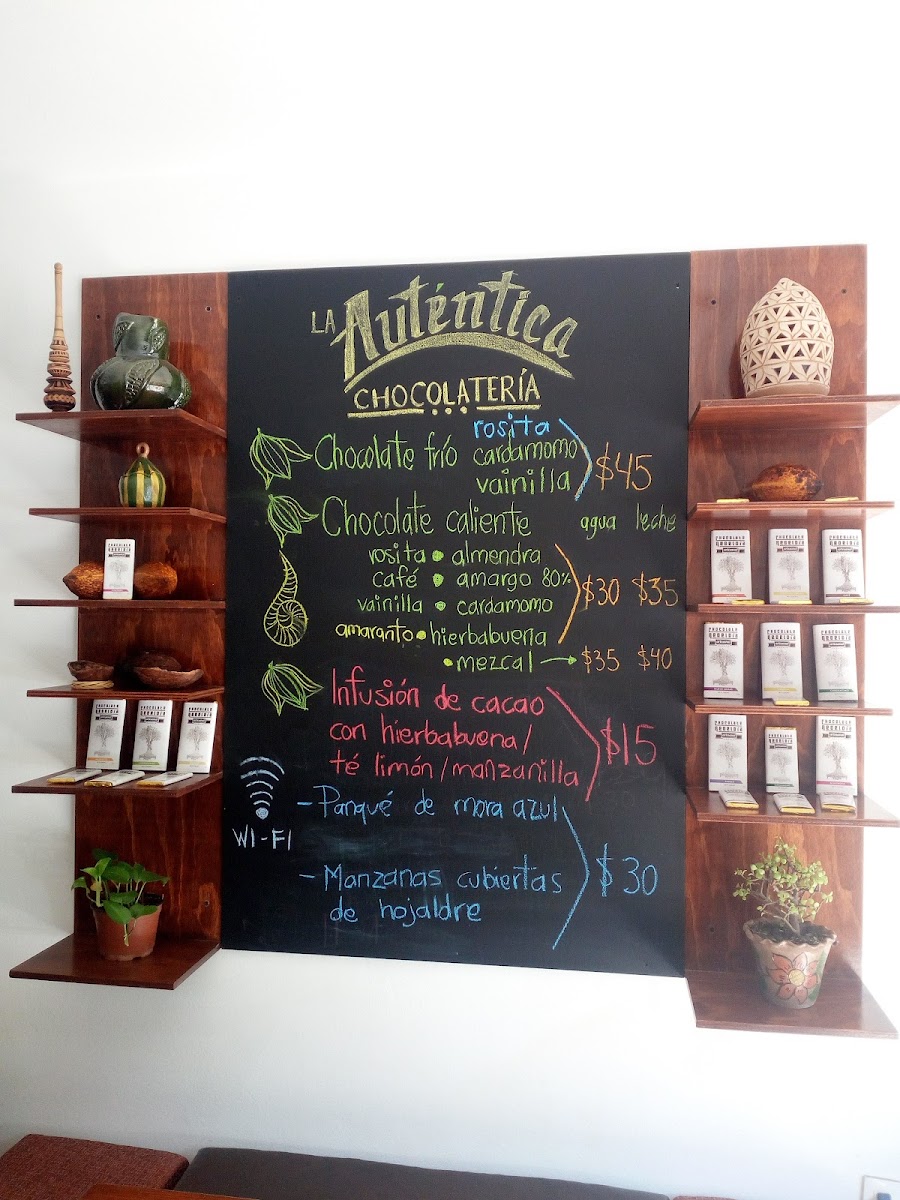 LA Auténtica
CHOCOLATERÍA
rosita
Chocolate frío cardamomo $45
vainilla
Chocolate caliente agua leche
rosita • almendra
café • amargo 80% $30 $35
vainilla • cardamomo
amaranto • hierbabuena
• mezcal → $35 $40
Infusión de cacao
con hierbabuena/ $15
té limón/manzanilla
WI-FI
- Panqué de mora azul
- Manzanas cubiertas $30
de hojaldre